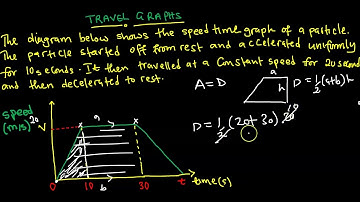 TRAVEL GRAPHS
The diagram below shows the speed time graph of a particle.
The particle started off from rest and accelerated uniformly
for 10seconds. It then travelled at a Constant speed for 20second
and then decelerated to rest.
A=D
a
h
D=½(a+b)h
speed
(m/s)
20
V
x
a
x
D=½(20+30)20
10
b
0
10
30
t
time(s)